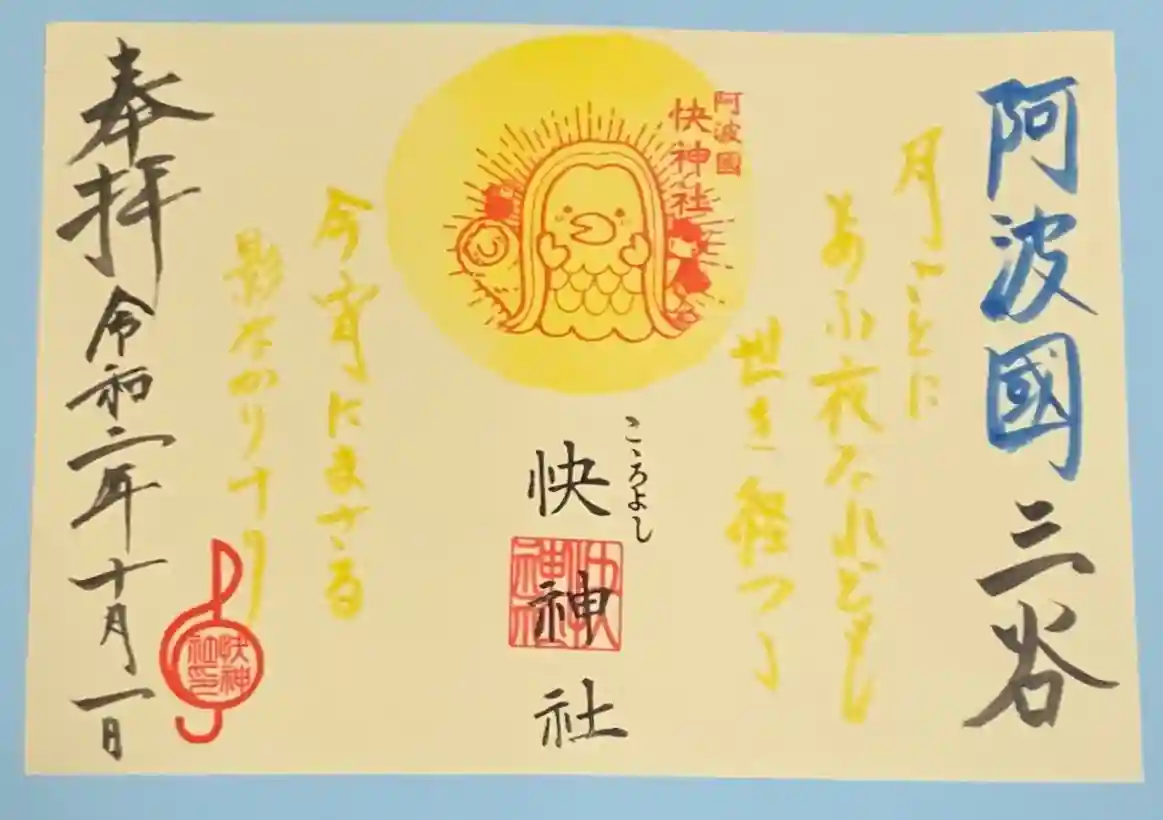 阿波國 三谷
月ごとに
あふ夜なれども
世を経つゝ
阿波國
快神社
こゝろよし
快神社
今宵にまさる
影なかりけり
快神社印
奉拝 令和二年十月一日